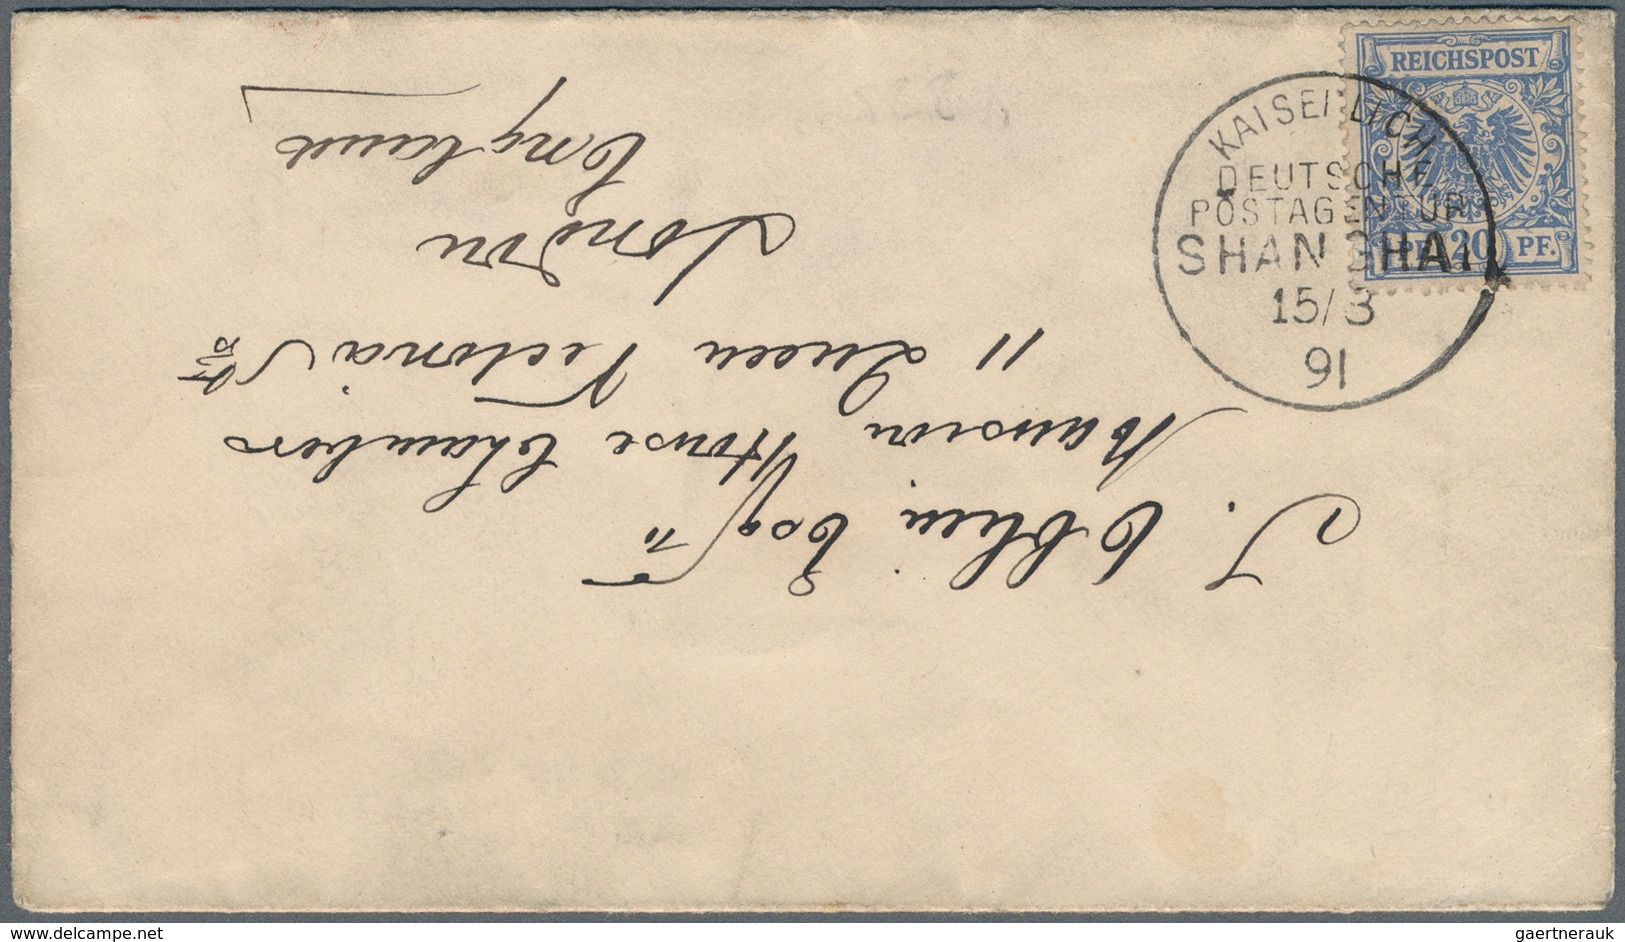 REICHSPOST
PF. 20 PF.
KAISERLICHE
DEUTSCHE
POSTAGENTUR
SHANGHAI
15/3
91
J. Esq
Mansion House Chambers
11 Queen Victoria St
London
England
www.delcampe.net
gaertnerauk